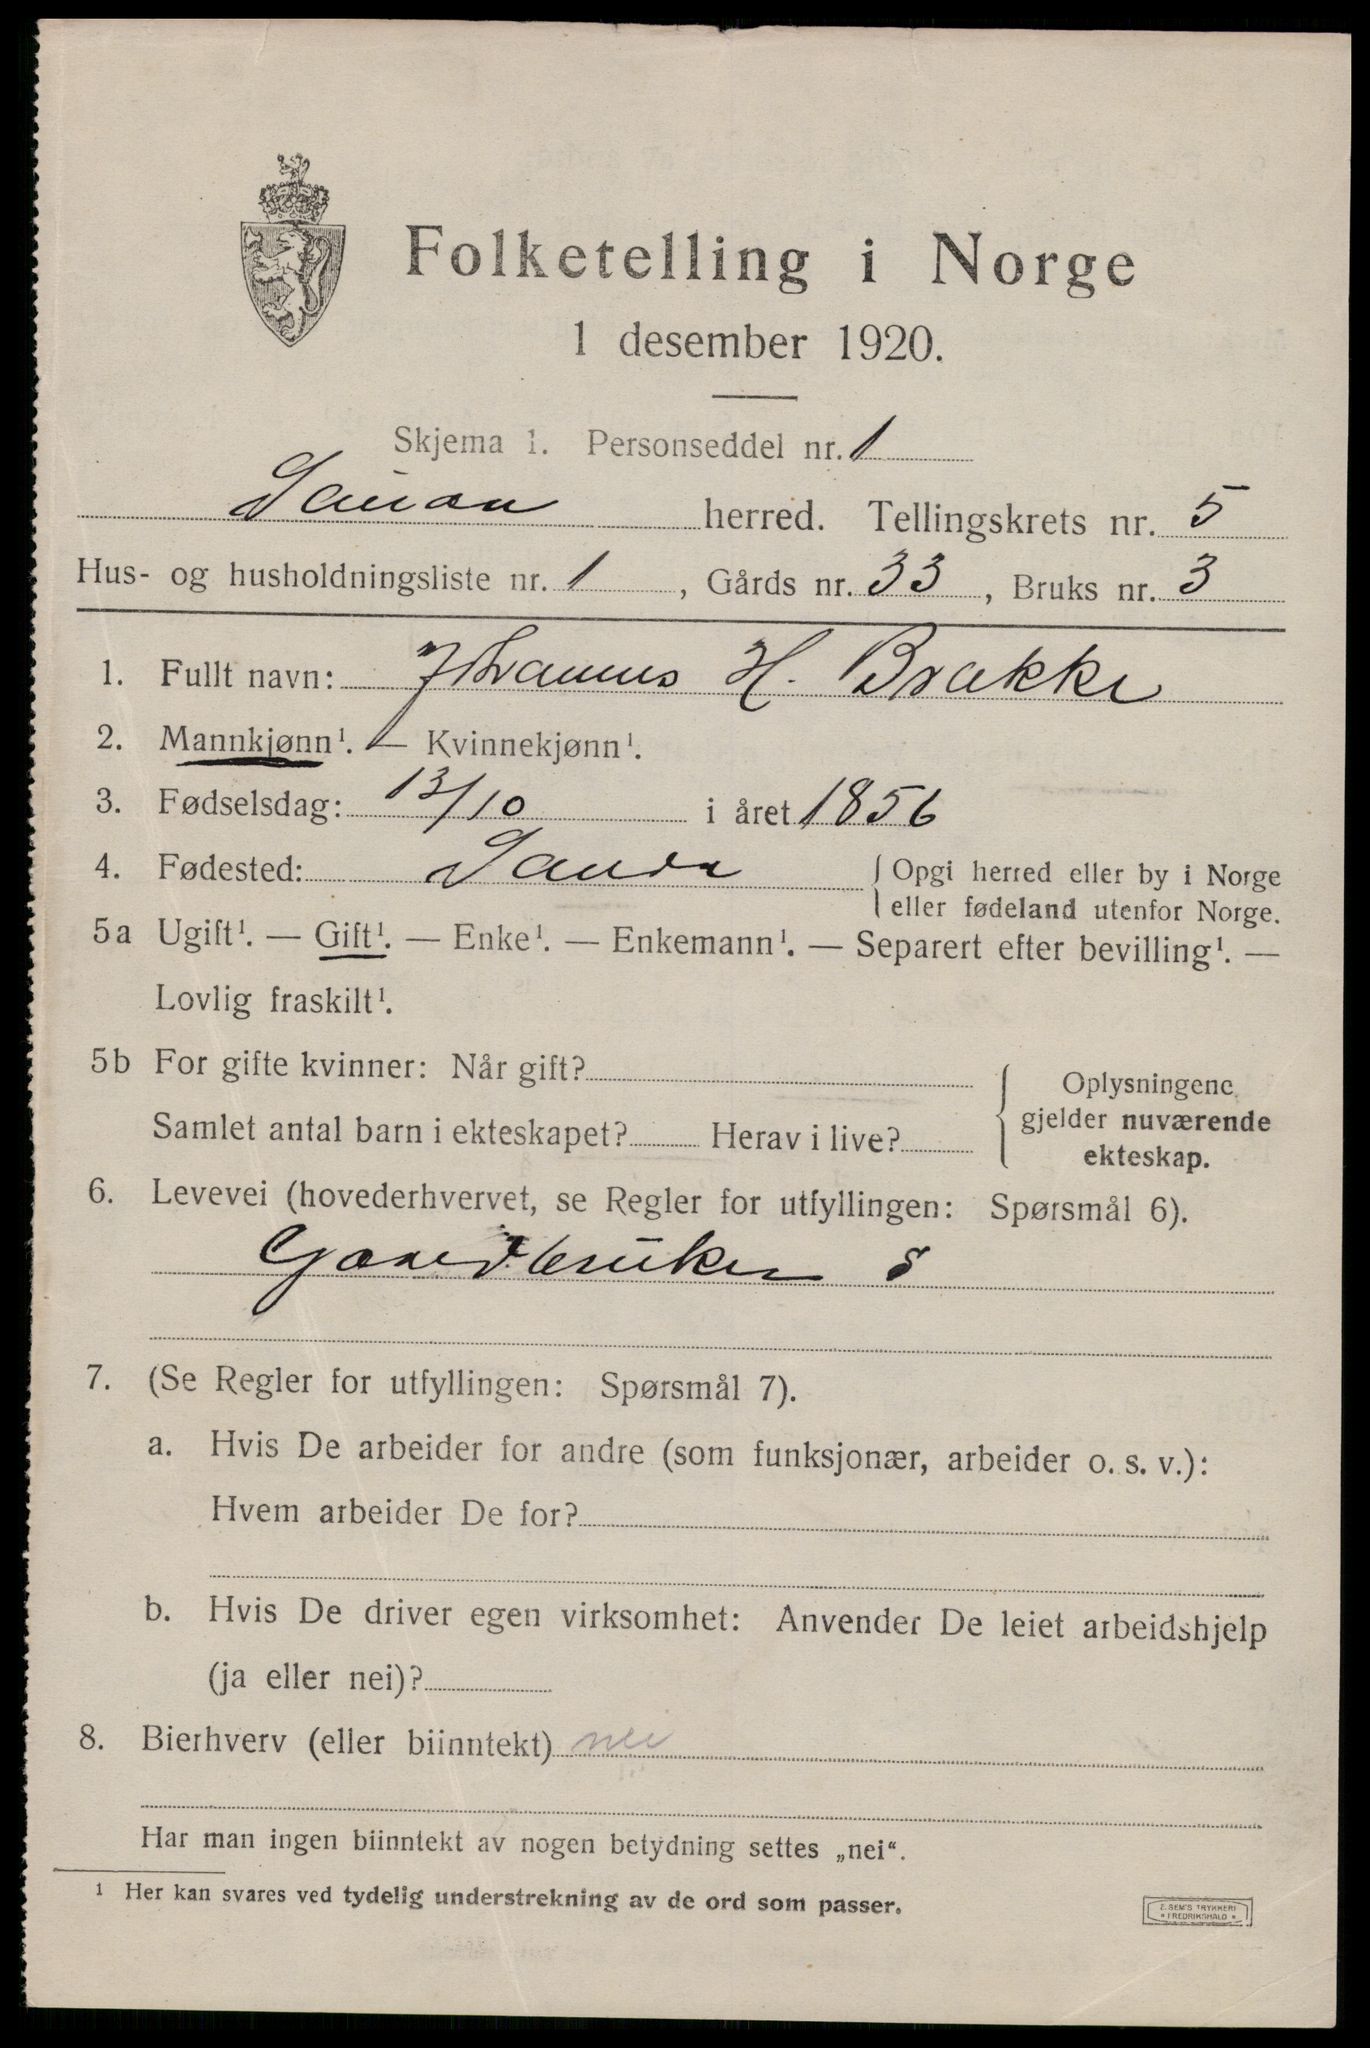 Folketelling i Norge
1 desember 1920.
Skjema 1. Personseddel nr. 1
Sauda herred. Tellingskrets nr. 5
Hus- og husholdningsliste nr. 1, Gårds nr. 33, Bruks nr. 3
1. Fullt navn: Johannes H. Brakke
2. Mannkjønn¹. — Kvinnekjønn¹.
3. Fødselsdag: 13/10 i året 1856
4. Fødested: Sauda { Opgi herred eller by i Norge
eller fødeland utenfor Norge.
5a Ugift¹. — Gift¹. — Enke¹. — Enkemann¹. — Separert efter bevilling¹. —
Lovlig fraskilt¹.
5b For gifte kvinner: Når gift? { Oplysningene
gjelder nuværende
Samlet antal barn i ekteskapet? Herav i live?
ekteskap.
6. Levevei (hovederhvervet, se Regler for utfyllingen: Spørsmål 6).
Gaardbruker s
7. (Se Regler for utfyllingen: Spørsmål 7).
a. Hvis De arbeider for andre (som funksjonær, arbeider o. s. v.):
Hvem arbeider De for?
b. Hvis De driver egen virksomhet: Anvender De leiet arbeidshjelp
(ja eller nei)?
8. Bierhverv (eller biinntekt) nei
Har man ingen biinntekt av nogen betydning settes „nei“.
¹ Her kan svares ved tydelig understrekning av de ord som passer.
E. SEM'S TRYKKERI
* FREDRIKSHALD *